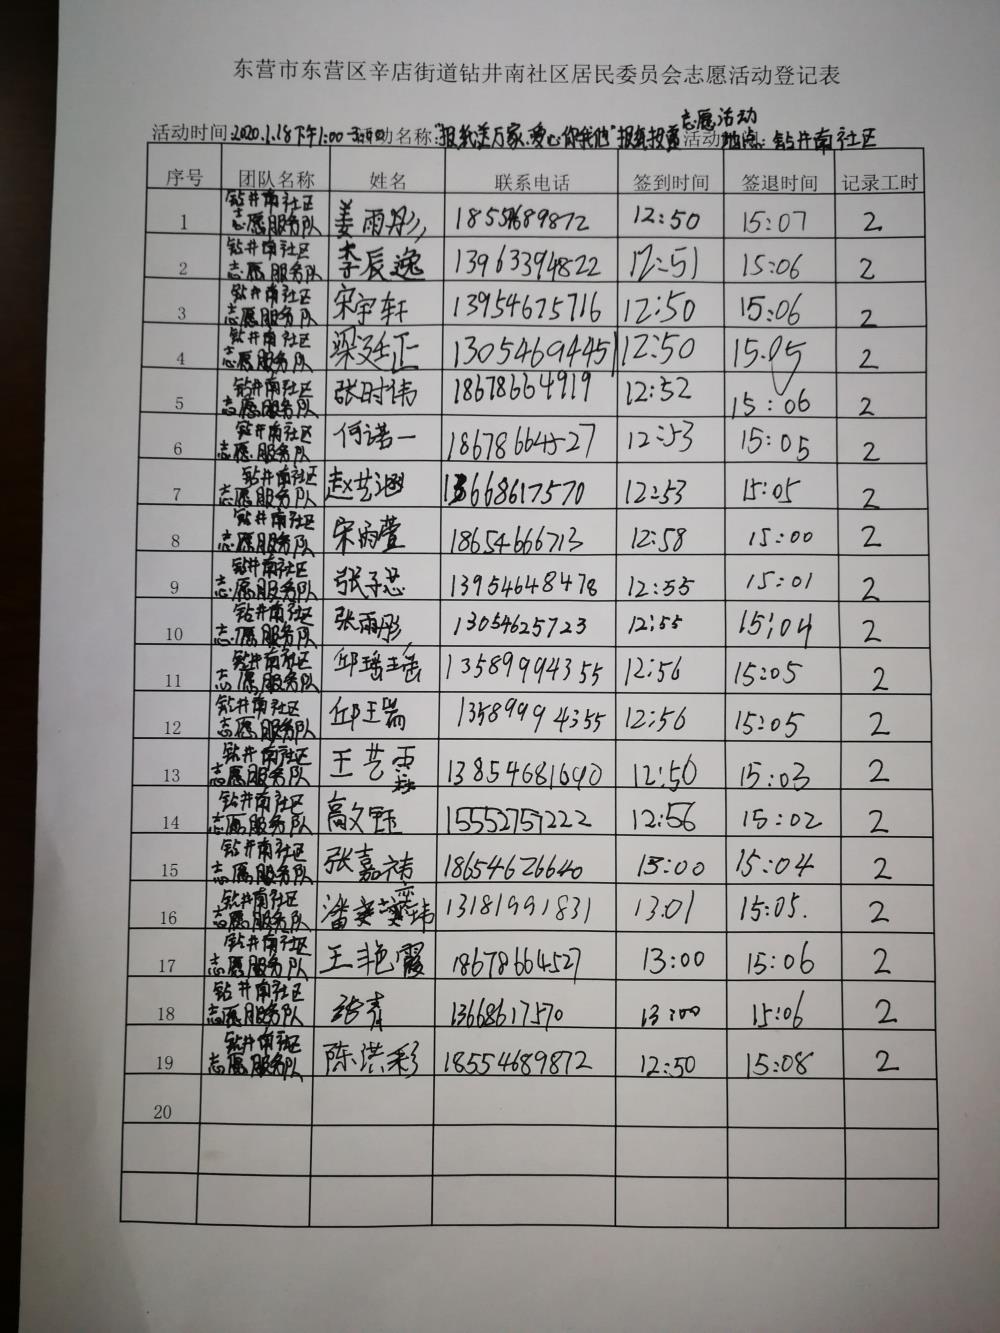 东营市东营区辛店街道钻井南社区居民委员会志愿活动登记表
志愿活动
活动时间:2020.1.18下午1:00 动名称:"报纸送万家,爱心你我他"报纸投 活动地点:钻井南社区
序号 团队名称 姓名 联系电话 签到时间 签退时间 记录工时
1 钻井南社区志愿服务队 姜雨彤 18554689872 12:50 15:07 2
2 钻井南社区志愿服务队 李辰逸 13963394822 12:51 15:06 2
3 钻井南社区志愿服务队 宋宇轩 13954675716 12:50 15:06 2
4 钻井南社区志愿服务队 梁廷正 13054694451 12:50 15:05 2
5 钻井南社区志愿服务队 张时伟 18678664919 12:52 15:06 2
6 钻井南社区志愿服务队 何诺一 18678664527 12:53 15:05 2
7 钻井南社区志愿服务队 赵艺涵 13668617570 12:53 15:05 2
8 钻井南社区志愿服务队 宋雨萱 18654666713 12:58 15:00 2
9 钻井南社区志愿服务队 张子芯 13954648478 12:55 15:01 2
10 钻井南社区志愿服务队 张雨彤 13054625723 12:55 15:04 2
11 钻井南社区志愿服务队 邱瑶瑶 13589994355 12:56 15:05 2
12 钻井南社区志愿服务队 邱王瑞 13589994355 12:56 15:05 2
13 钻井南社区志愿服务队 王艺霖 13854681690 12:56 15:03 2
14 钻井南社区志愿服务队 高文钰 15552757222 12:56 15:02 2
15 钻井南社区志愿服务队 张嘉祎 18654626640 13:00 15:04 2
16 钻井南社区志愿服务队 潘奕玮 13181991831 13:01 15:05. 2
17 钻井南社区志愿服务队 王艳霞 18678664527 13:00 15:06 2
18 钻井南社区志愿服务队 张青 13668617570 13:00 15:06 2
19 钻井南社区志愿服务队 陈洪彩 18554689872 12:50 15:08 2
20